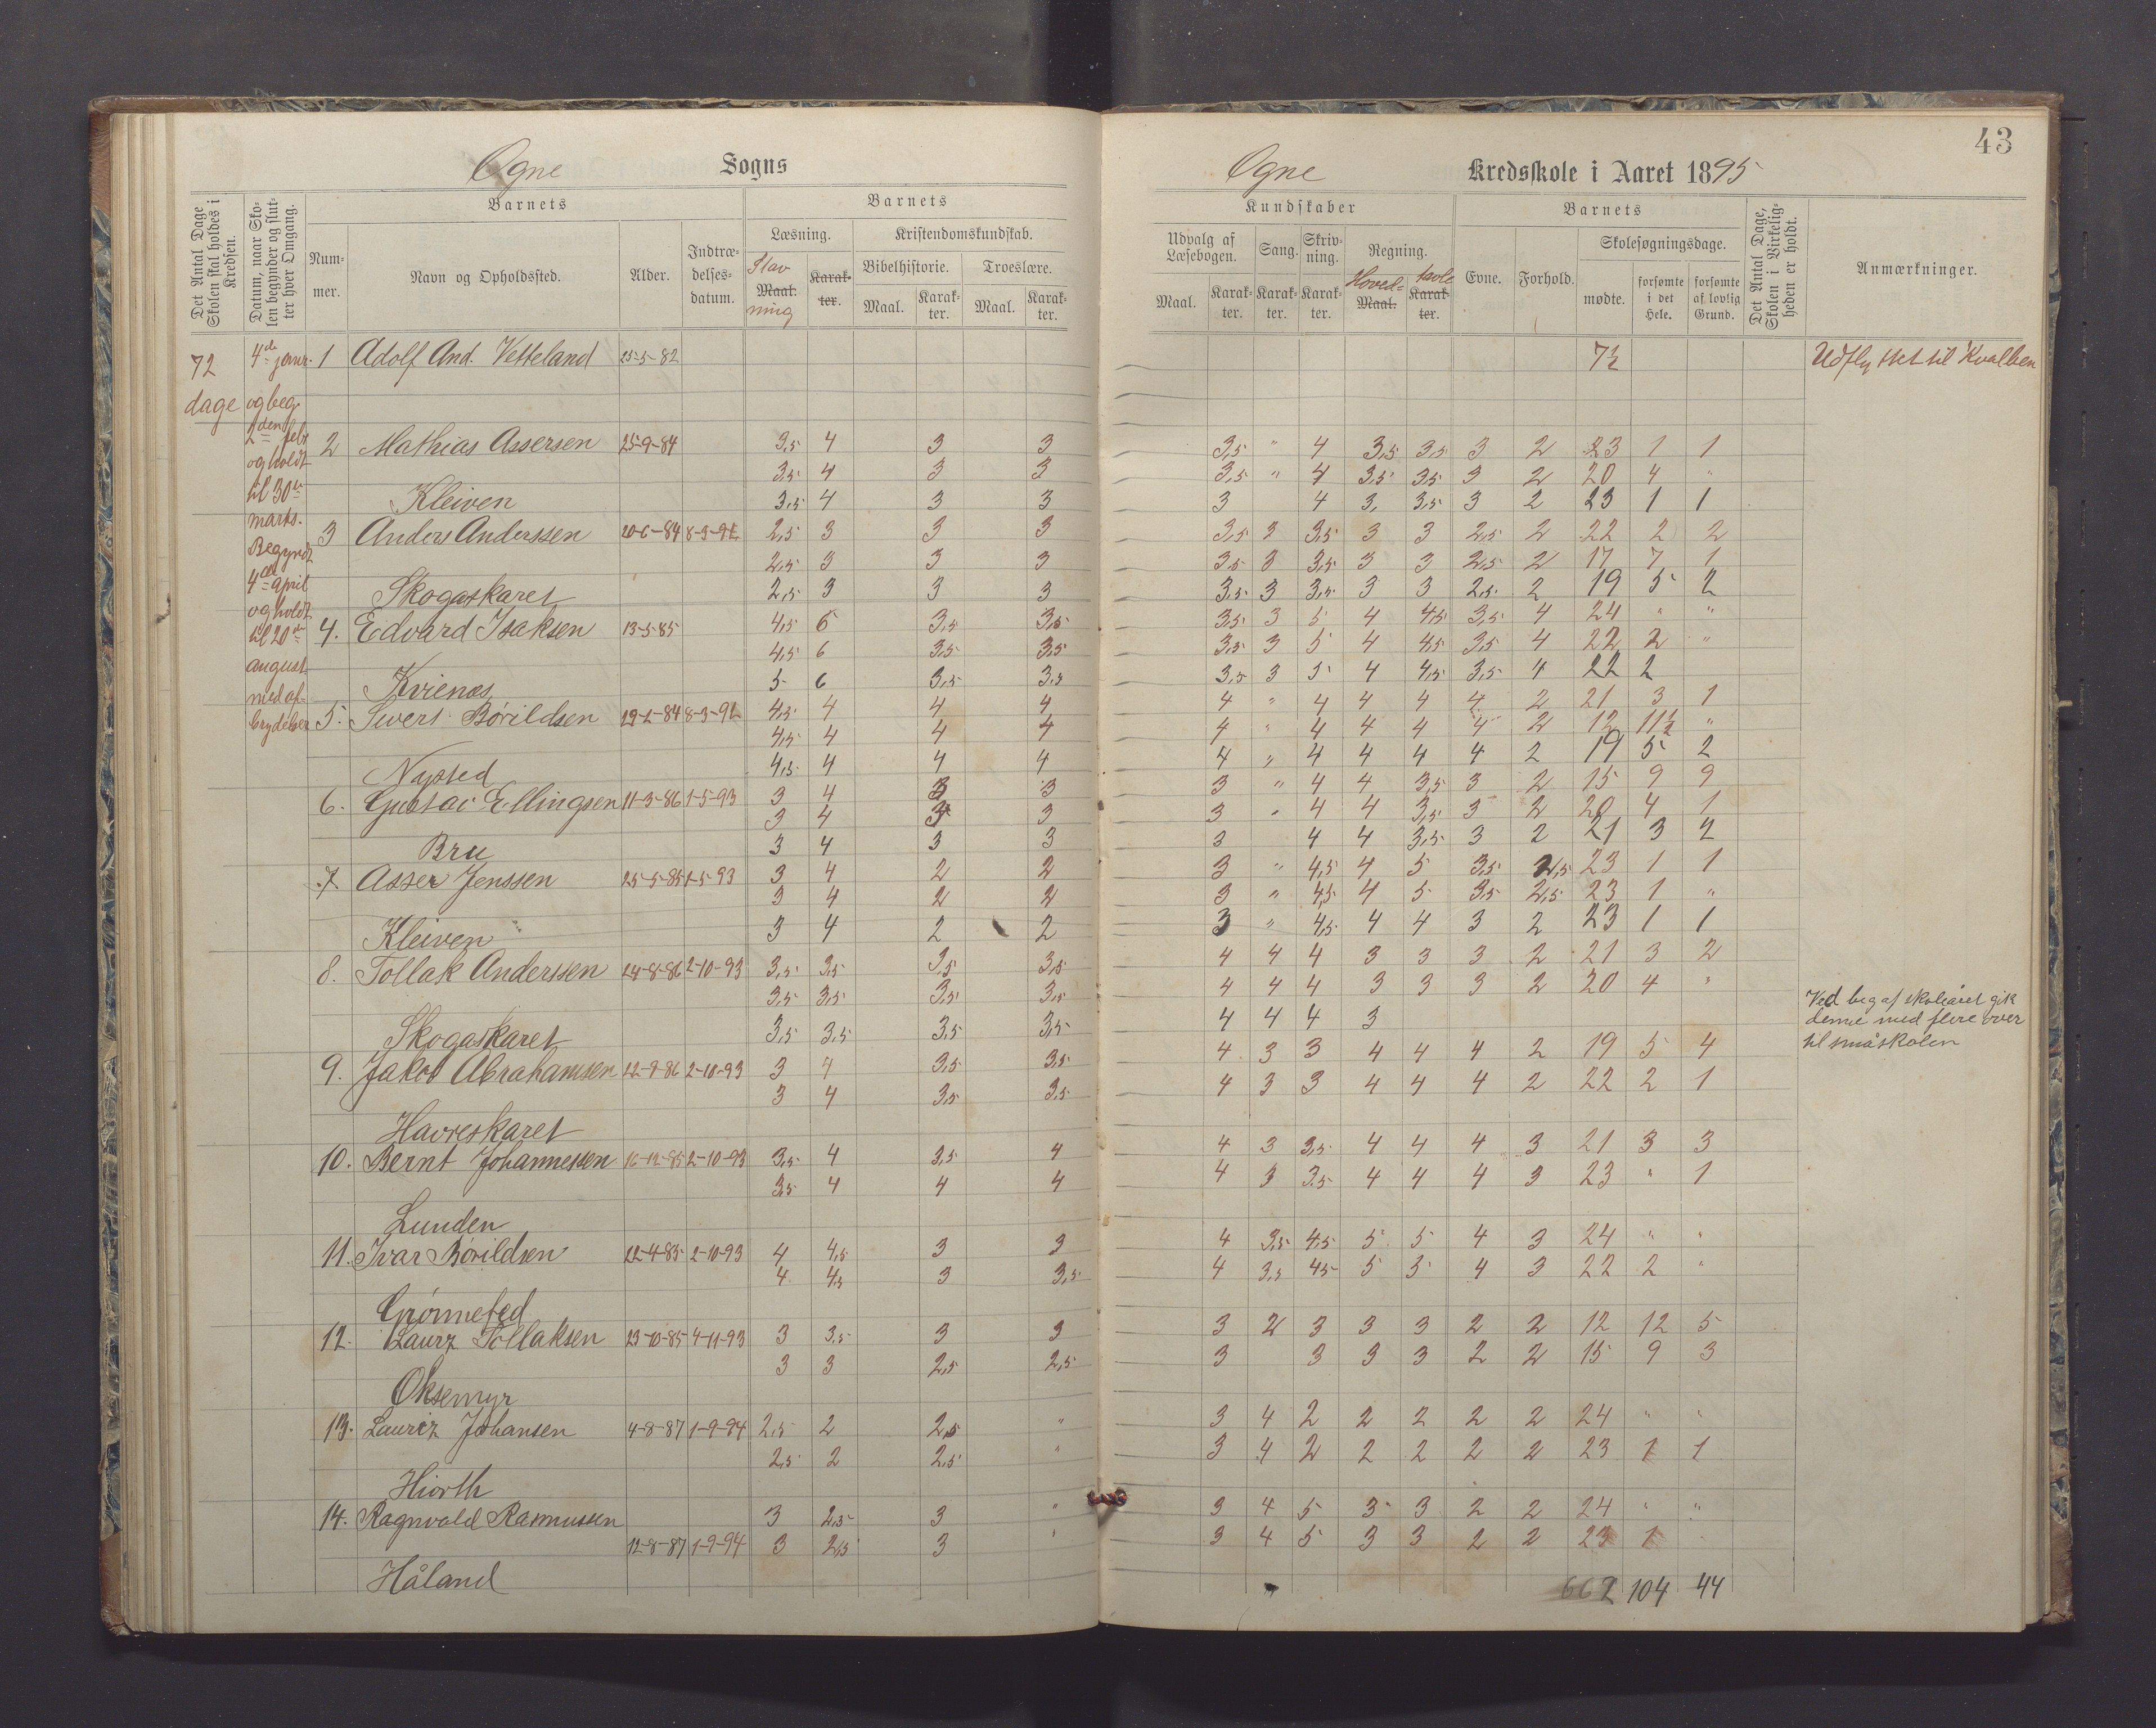 43
Ogne Sogns
Ogne Kredsskole i Aaret 1895
Det Antal Dage Skolen skal holdes i Kredsen.
Datum, naar Skolen begynder og slutter hver Omgang.
Barnets
Nummer.
Navn og Opholdssted.
Alder.
Indtrædelsesdatum.
Barnets
Læsning.
Stavning
Maal.
Karakter.
Kristendomskundskab.
Bibelhistorie.
Maal.
Karakter.
Troeslære.
Maal.
Karakter.
Kundskaber
Udvalg af Læsebogen.
Maal.
Karakter.
Sang.
Karakter.
Skrivning.
Karakter.
Regning.
Hoved-
Maal.
tavle
Karakter.
Barnets
Evne.
Forhold.
Skolesøgningsdage.
mødte.
forsømte i det Hele.
forsømte af lovlig Grund.
Det Antal Dage, Skolen i Virkeligheden er holdt.
Anmærkninger.
72
dage
4de janr.
og beg.
2den febr
og holdt
til 30te
marts.
Begyndt
4de april
og holdt
til 20de
august
med af-
brydelser
1 Adolf And. Vetteland 25-5-82 7½ Udflyttet til Kvalben
2 Mathias Assersen 25-9-84 3,5 4 3 3 3,5 " 4 3,5 3,5 3 2 23 1 1
3,5 4 3 3 3,5 " 4 3,5 3,5 3 2 20 4 "
Kleiven 3,5 4 3 3 3 4 3, 3,5 3 2 23 1 1
3 Anders Anderssen 20-6-84 8-3-92 2,5 3 3 3 3,5 3 3,5 3 3 2,5 2 22 2 2
2,5 3 3 3 3,5 3 3,5 3 3 2,5 2 17 7 1
Skogaskaret 2,5 3 3 3 3,5 3 3,5 3 3 2,5 2 19 5 2
4. Edvard Isaksen 13-5-85 4,5 6 3,5 3,5 3,5 3 5 4 4,5 3,5 4 24 " "
4,5 6 3,5 3,5 3,5 3 5 4 4,5 3,5 4 22 2 "
Kvienes 5 6 3,5 3,5 3,5 3 5 4 4,5 3,5 4 22 2
5. Sivert Børildsen 19-2-84 8-3-92 4,5 4 4 4 4 " 4 4 4 4 2 21 3 1
4,5 4 4 4 4 " 4 4 4 4 2 12 11½ "
Nysted 4,5 4 4 4 4 " 4 4 4 4 2 19 5 2
6. Gustav Ellingsen 11-3-86 1-5-93 3 4 3 3 3 " 4 4 3,5 3 2 15 9 9
3 4 3 3 3 " 4 4 3,5 3 2 20 4 1
Bru 3 4 3 3 3 4 4 3,5 3 2 21 3 2
7 Asser Jenssen 25-5-85 1-5-93 3 4 2 2 3 " 4,5 4 5 3,5 2,5 23 1 1
3 4 2 2 3 " 4,5 4 5 3,5 2,5 23 1 "
Kleiven 3 4 2 2 3 " 4,5 4 4 3 2 23 1 1
8. Tollak Anderssen 24-8-86 2-10-93 3,5 3,5 3,5 3,5 4 4 4 3 3 3 2 21 3 2
3,5 3,5 3,5 3,5 4 4 4 3 3 3 2 20 4 "
Skogaskaret 3,5 3,5 3,5 3,5 4 4 4 3
Ved beg af skoleåret gik
denne med flere over
til småskolen
9. Jakob Abrahamsen 22-9-86 2-10-93 3 4 3,5 3,5 4 3 3 4 4 4 2 19 5 4
3 4 3,5 3,5 4 3 3 4 4 4 2 22 2 1
Havreskaret
10. Bernt Johannessen 16-12-85 2-10-93 3,5 4 3,5 4 4 3 3,5 4 4 4 3 21 3 3
3,5 4 4 4 4 3 3,5 4 4 4 3 23 " 1
Lunden
11. Ivar Børildsen 22-4-85 2-10-93 4 4,5 3 3 4 3,5 4,5 5 5 4 3 24 " "
4 4,5 3 3,5 4 3,5 4,5 5 5 4 3 22 2 "
Grønnefed
12. Laurz Tollaksen 23-10-85 4-11-93 3 3,5 3 3 3 2 3 3 3 2 2 12 12 5
3 3 2,5 2,5 3 3 3 3 2 2 15 9 3
Oksemyr
13. Lauriz Johansen 4-8-87 1-9-94 2,5 2 2,5 " 3 4 2 2 2 2 2 24 " "
2,5 2 2,5 " 3 4 2 2 2 2 2 23 1 1
Hiorth
14. Ragnvald Rasmussen 3 2,5 3 " 3 4 5 3 3 2 2 24 " "
12-8-87 1-9-94 3 2,5 3 " 3 4 5 3 3 2 2 23 1
Håland
662 104 44